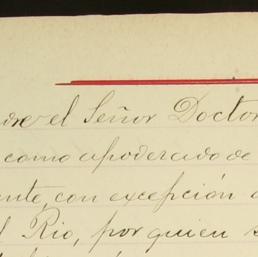 el Señor Doctor
como apoderado de
ente, con excepción
Rio, por quien